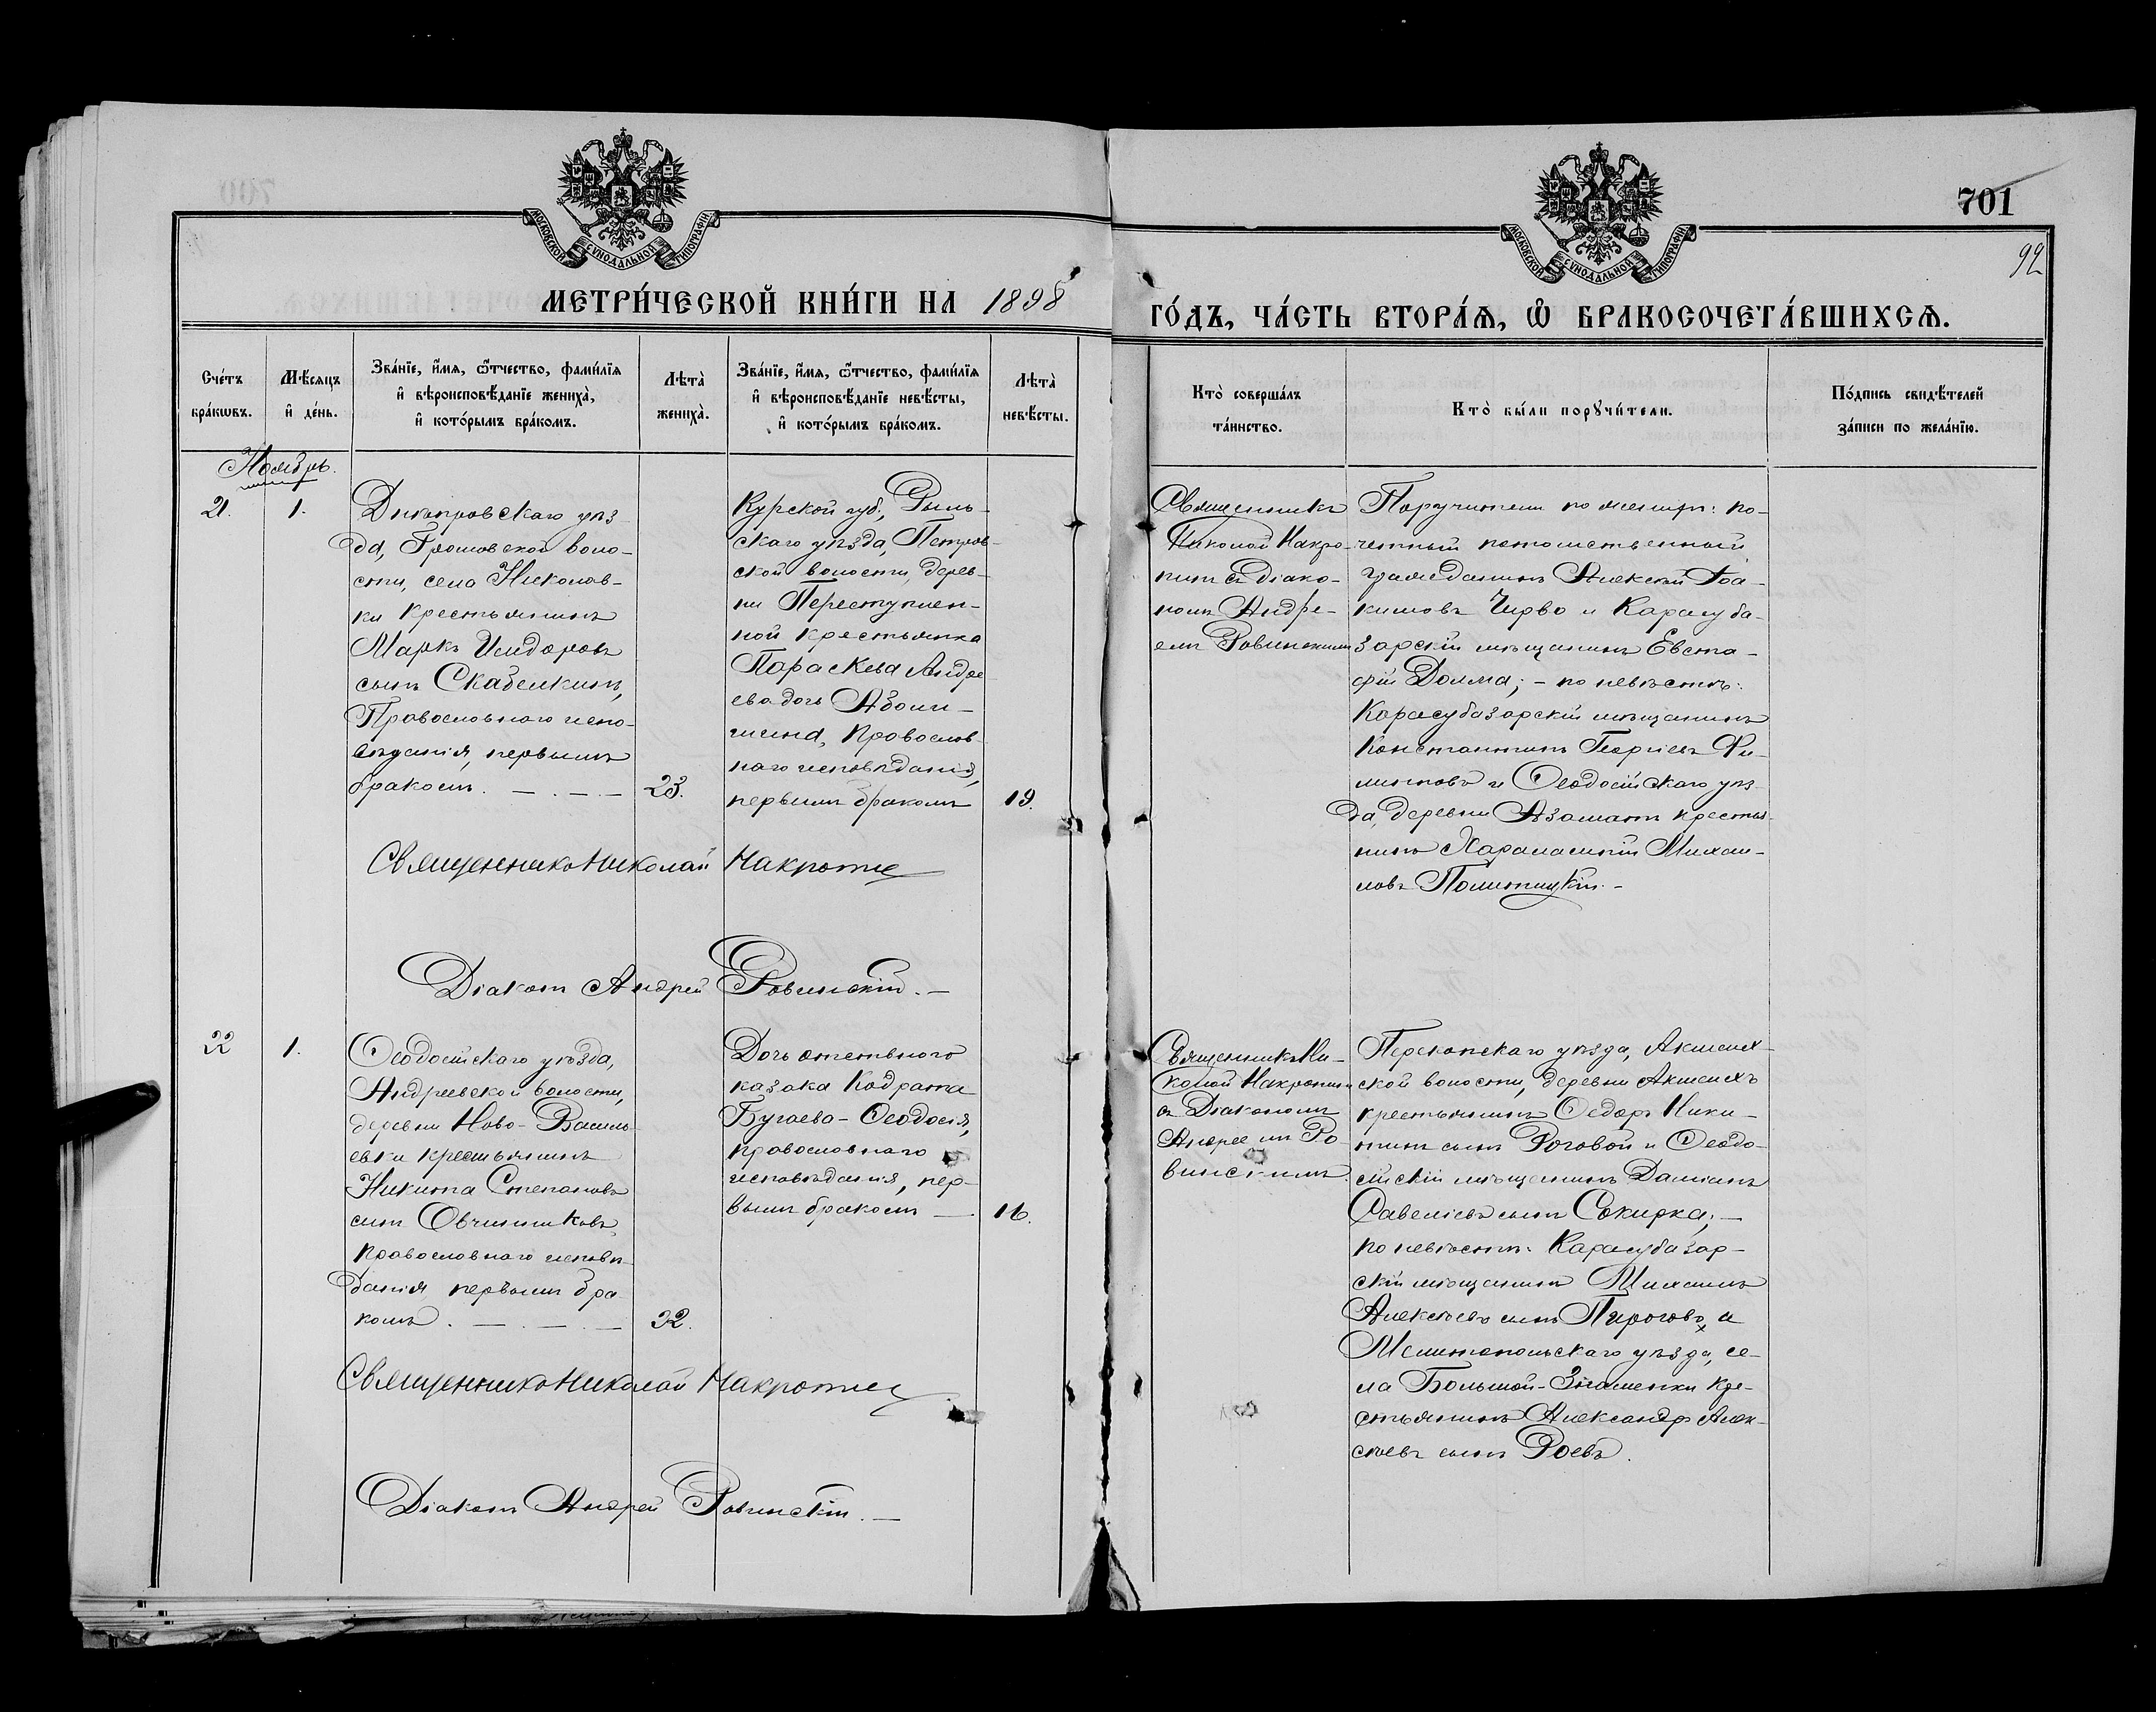 701
92
МОСКОВСКОЙ СѴНОДАЛЬНОЙ ТИПОГРАФІИ
МОСКОВСКОЙ СѴНОДАЛЬНОЙ ТИПОГРАФІИ
МЕТРИ́ЧЕСКОЙ КНИ́ГИ НА 1898 ГО́ДЪ, ЧА́СТЬ ВТОРА́Ѧ, Ѽ БРАКОСОЧЕТА́ВШИХСѦ.
Сче́тъ бра́кωвъ.
Мѣ́сяцъ и҆ де́нь.
Зва́нїе, и҆́мѧ, ѻ҆́тчество, фами́лїѧ
и҆ вѣроисповѣ́данїе жениха̀,
и҆ кото́рымъ бра́комъ.
Лѣта̀ жениха̀.
Зва́нїе, и҆́мѧ, ѻ҆́тчество, фами́лїѧ
и҆ вѣроисповѣ́данїе невѣ́сты,
и҆ кото́рымъ бра́комъ.
Лѣта̀ невѣ́сты.
Кто̀ соверша́лъ та́инство.
Кто̀ бы́ли порꙋчи́тели.
По́дпись свидѣ́телей за́писи по жела́нїю.
Ноябрь.
21.
1.
Днѣпровскаго уѣз-
да, Громовской воло-
сти, села Николов-
ки крестьянинъ
Маркъ Исидоровъ
сынъ Скабелкинъ,
Православнаго испо-
вѣданія, первымъ
бракомъ. — . — . —
23.
Курской губ., Рыль-
скаго уѣзда, Петров-
ской волости, дерев-
ни Переступлен-
ной крестьянка
Параскева Андре
ева дочь
православ-
наго исповѣданія,
первымъ бракомъ
19.
Священникъ
Николай Макро-
питъ съ Діако-
номъ Андре-
емъ Ровинскимъ
Поручители по женихѣ: по-
четный потомственный
гражданинъ Алексѣй Іоа-
кимовъ Чирво и Карасуба-
зарскій мѣщанинъ Евста-
фій Долма; - по невѣстѣ:
Карасубазарскій мѣщанинъ
Константинъ Георгіевъ Фи-
липповъ и Ѳеодосійскаго уѣз-
да, деревни Азаматъ крестья-
нинъ Харлампій Михаи-
ловъ
Священникъ Николай Макропитъ
Діаконъ Андрей Ровинскій. —
22
1.
Ѳеодосійскаго уѣзда,
Андреевской волости,
деревни Ново-Василь-
евки крестьянинъ
Никита Степановъ
сынъ Овчинниковъ,
православнаго исповѣ-
данія первымъ бра
комъ. — . — . —
22.
Дочь отставного
казака Кодрата
Бугаева - Ѳеодосія,
православнаго
исповѣданія, пер-
вымъ бракомъ —
16.
Священникъ Ни-
колай Макропитъ
съ Діакономъ
Андреемъ Ро-
винскимъ.
Перекопскаго уѣзда, Акшеих-
ской волости, деревни Акшеихъ
крестьянинъ Ѳедоръ Ники-
тинъ сынъ Роговой и Ѳеодо-
сійскій мѣщанинъ Даміанъ
Савеліевъ сынъ Сокирка; —
по невѣстѣ: Карасубазар-
скій мѣщанинъ Михаилъ
Алексѣевъ сынъ Пироговъ, и
Мелитопольскаго уѣзда, се-
ла Большой-Знаменки кре-
стьянинъ Александръ Алек-
сѣевъ сынъ Роевъ.
Священникъ Николай Макропитъ
Діаконъ Андрей Ровинскій. —